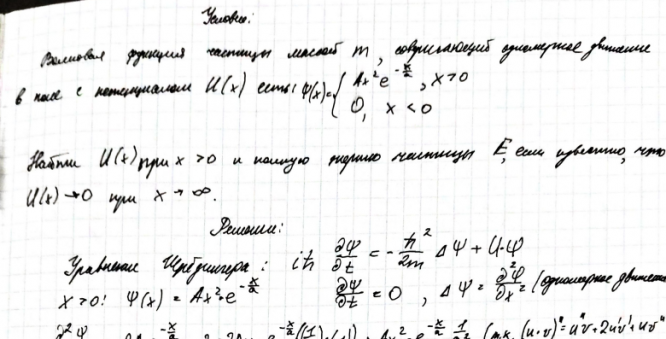 Условие:
Волновая функция частицы массой m, совершающей одномерное движение
в поле с потенциалом U(x) есть: ψ(x)={ Ax²e^{-x/a}, x>0
0, x<0
Найти U(x) при x>0 и полную энергию частицы E, если известно, что
U(x)→0 при x→∞.
Решение:
Уравнение Шрёдингера: iħ ∂Ψ/∂t = -ħ²/2m ΔΨ + U·Ψ
x>0: Ψ(x) = Ax²·e^{-x/a} ∂Ψ/∂t = 0, ΔΨ = ∂²Ψ/∂x² (одномерное движение
∂²Ψ (u·v)''=u''v+2u'v'+uv''